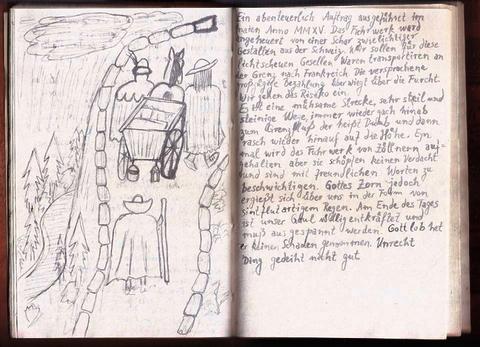 Ein abenteuerlich Auftrag ausgeführt im
maien Anno MMXV. Das Fuhrwerk ward
angeheuert von einer Schar zwielichtiger
Gestalten aus der Schweiz. Wir sollen für diese
lichtscheuen Gesellen Waren transportieren an
der Grenz nach Frankreich. Die versprochene
Bezahlung überwiegt über die Furcht.
Wir gehen das Risiko ein.
Es ist eine mühsame Strecke, sehr steil und
steinige Wege, immer wieder gach hinab
zum Grenzfluß der heißt Dumb und dann
rasch wieder hinauf auf die Höhe. Ein
mal wird das Fuhrwerk von Zöllnern auf=
gehalten aber sie schöpfen keinen Verdacht
und sind mit freundlichen Worten zu
beschwichtigen. Gottes Zorn jedoch
ergießt sich über uns in der Form von
sintflutartigem Regen. Am Ende des Tages
ist unser Gaul völlig entkräftet und
muß ausgespannt werden. Gott lob hat
er keinen Schaden genommen. Unrecht
Ding gedeiht nicht gut